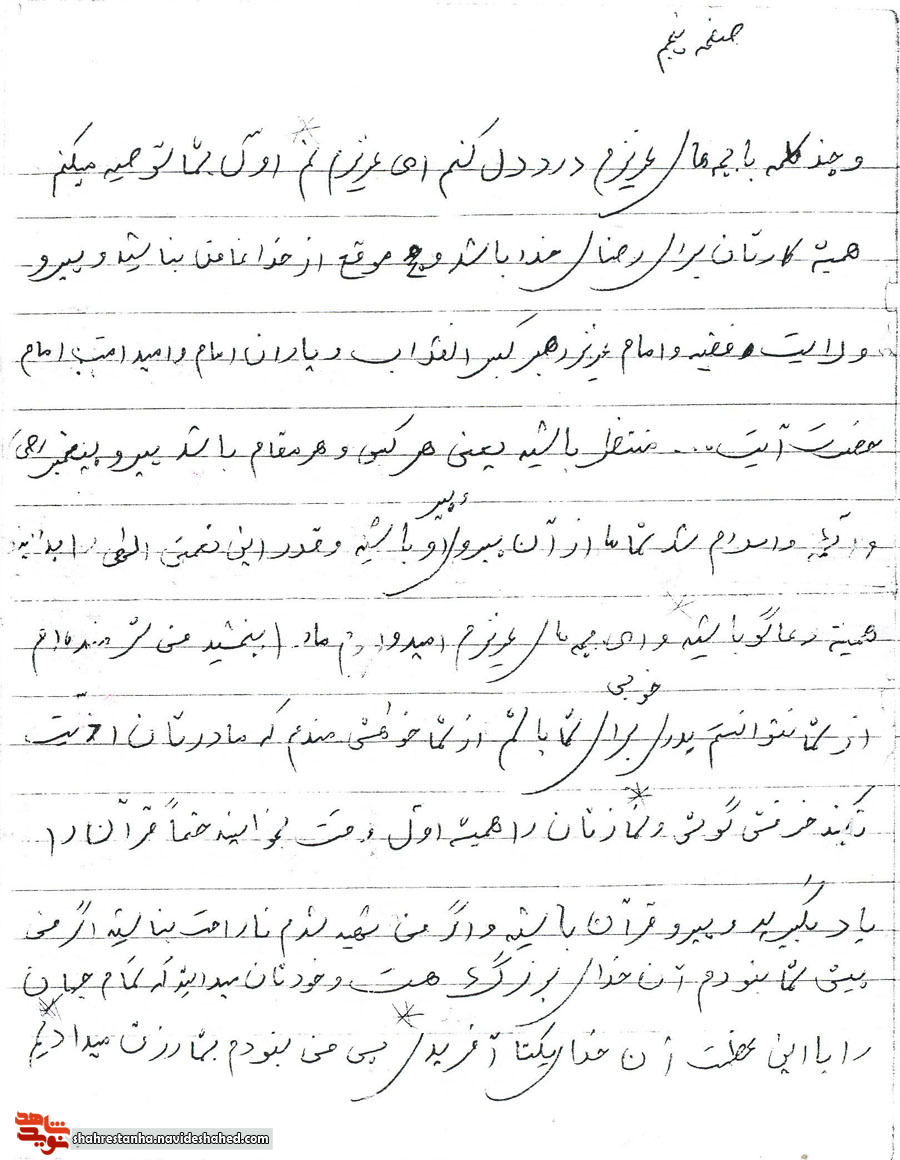 صفحه پنجم
و چند کلمه با بچه های عزیزم درد دل کنم ای عزیزم اول بشما توصیه میکنم
همیشه کارتان برای رضای خدا باشد و هیچ موقع از خدا غافل نباشید و پیرو
ولایت فقیه و امام عزیز رهبر کبیر انقلاب و یاران امام و امید امت امام
حضرت آیت ... منتظری باشید یعنی هر کسی و هر مقام باشد پیرو پیغمبر (ص)
و ائمه و اسلام شد شما ها از آن پیروی او باشید و قدر این نعمت الهی را بدانید
پیرو
همیشه دعاگو باشید و ای بچه های عزیزم امیدوارم ما را ببخشید من شرمنده ام
از شما نتوانستم پدری برای شما باشم از شما خواهش مندم که مادرتان اذیت
خوبی
نکنید حرفش گوش و نمازتان را همیشه اول وقت بخوانید حتماً قرآن را
یاد بگیرید و پیرو قرآن باشید و اگر من شهید شدم ناراحت نباشید اگر من
پیش شما نبودم آن خدای بزرگ هست و خودتان میدانید که تمام جهان
را با این عظمت آن خدای یکتا آفریدی پس من نبودم بشما رزق میدادم
shahrestanha.navideshahed.com
نوید شاهد